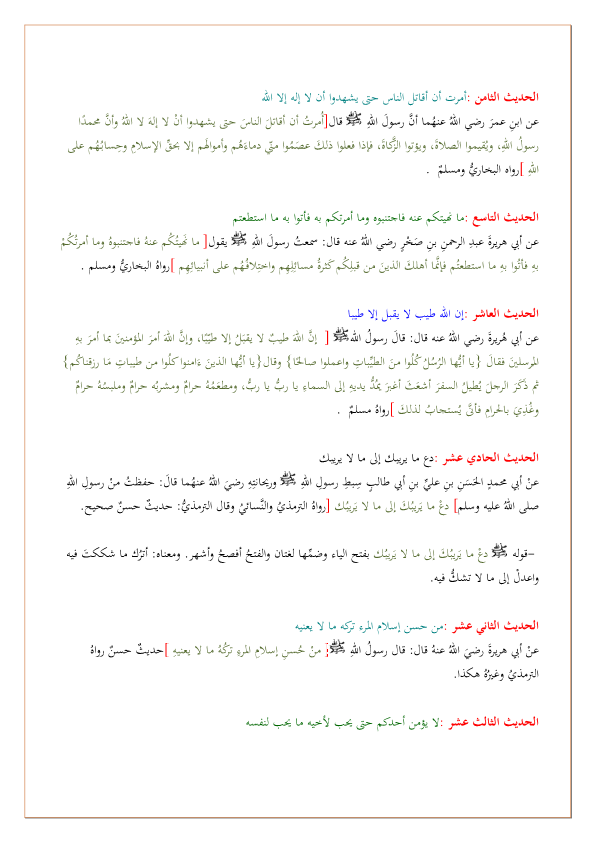 الحديث الثامن :أمرت أن أقاتل الناس حتى يشهدوا أن لا إله إلا الله
عن ابنِ عمرَ رضي اللهُ عنهُما أنَّ رسولَ اللهِ ﷺ قال[أُمرتُ أن أقاتلَ الناسَ حتى يشهدوا أنْ لا إلهَ لا اللهُ وأنَّ محمدًا
رسولُ اللهِ، ويُقيموا الصلاةَ، ويؤتوا الزَّكاةَ، فإذا فعلوا ذلكَ عصَمُوا منّي دماءَهُم وأموالَهم إلا بحقِّ الإسلامِ وحِسابُهُم على
اللهِ ]رواه البخاريُّ ومسلمٌ .
الحديث التاسع :ما نهيتكم عنه فاجتنبوه وما أمرتكم به فأتوا به ما استطعتم
عن أبي هريرةَ عبدِ الرحمنِ بنِ صَخْرٍ رضي اللهُ عنه قال: سمعتُ رسولَ اللهِ ﷺ يقول[ ما نَهيتُكُم عنهُ فاجتنبوهُ وما أمرتُكُمْ
بهِ فأتُوا بهِ ما استطعتُم فإنَّما أهلكَ الذينَ من قبلِكُم كَثرةُ مسائلِهِم واختِلافُهُم على أنبيائِهِم ]رواهُ البخاريُّ ومسلم .
الحديث العاشر :إن الله طيب لا يقبل إلا طيبا
عن أبي هُريرةَ رضي اللهُ عنه قال: قالَ رسولُ اللهِ ﷺ [ إنَّ اللهَ طيبٌ لا يقبَلُ إلا طيّبًا، وإنَّ اللهَ أمرَ المؤمنينَ بما أمرَ بهِ
المرسلينَ فقالَ {يا أيُّها الرُسُلُ كُلُوا منَ الطيِّباتِ واعملوا صالحًا} وقال{يا أيُّها الذينَ ءَامنوا كلُوا من طيباتِ مَا رزقناكُم}
ثم ذَكَرَ الرجلَ يُطيلُ السفرَ أشعَثَ أغبَرَ يمُدُّ يديهِ إلى السماءِ يا ربُّ يا ربُّ، ومطعَمُهُ حرامٌ ومشربُه حرامٌ وملبسُهُ حرامٌ
وغُذِيَ بالحرامِ فأنَّى يُستجابُ لذلكَ ]رواهُ مسلمٌ .
الحديث الحادي عشر :دع ما يريبك إلى ما لا يريبك
عنْ أبي محمدٍ الحَسَنِ بنِ عليِّ بنِ أبي طالبٍ سِبطِ رسولِ اللهِ ﷺ وريحانتِهِ رضيَ اللهُ عنهُما قالَ: حفظتُ منْ رسولِ اللهِ
صلى اللهُ عليه وسلم] دعْ ما يَريبُكَ إلى ما لا يَريبُك [رواهُ الترمذيُ والنَّسائيُ وقال الترمذيُّ: حديثٌ حسنٌ صحيح.
–قوله ﷺ دعْ ما يَريبُكَ إلى ما لا يَريبُك بفتح الياء وضمِّها لغتان والفتحُ أفصحُ وأشهر. ومعناه: أترُك ما شككتَ فيه
واعدلْ إلى ما لا تشكُّ فيه.
الحديث الثاني عشر :من حسن إسلام المرء تركه ما لا يعنيه
عنْ أبي هريرةَ رضيَ اللهُ عنهُ قال: قال رسولُ اللهِ ﷺ[ منْ حُسنِ إسلامِ المرءِ تركُهُ ما لا يعنيهِ ]حديثٌ حسنٌ رواهُ
الترمذيُ وغيرُهُ هكذا.
الحديث الثالث عشر :لا يؤمن أحدكم حتى يحب لأخيه ما يحب لنفسه